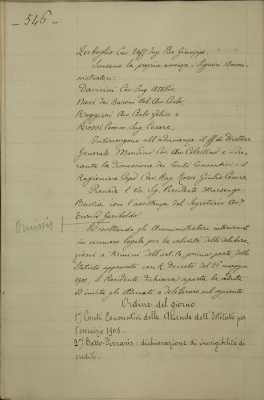 - 546 -
Zerboglio Cav. Uff. Ing. Pio Giuseppe.
Scusano la propria assenza i Signori Ammi-
nistratori:
Daviini Cav. Ing. Attilio,
Nasi dei Baroni Nob. Avv. Carlo,
Reggiori Avv. Carlo Felice e
Rossi Comm. Ing. Cesare.
Intervengono all'adunanza il ff. di Direttore
Generale Mondino Cav. Avv. Celestino e - du-
rante la discussione dei Conti Consuntivi - il
Ragioniere Capo Cav. Rag. Rossi Giulio Cesare.
Presiede il Vice Presidente
Bastia con l'assistenza del Segretario Avv.
Enrico Garboldo.
Omissis
Risultando gli Amministratori intervenuti
in numero legale per la validità delle delibera-
zioni a termini dell'art. 14 prima parte dello
Statuto approvato con R. Decreto del 26 maggio
1901, il Presidente dichiara aperta la seduta
ed invita gli adunati a deliberare sul seguente
Ordine del giorno
1°) Conti Consuntivi delle Aziende dell'Istituto per
l'esercizio 1906.
2°) Bosso-Ferraris: dichiarazione di inesigibilità di
credito.